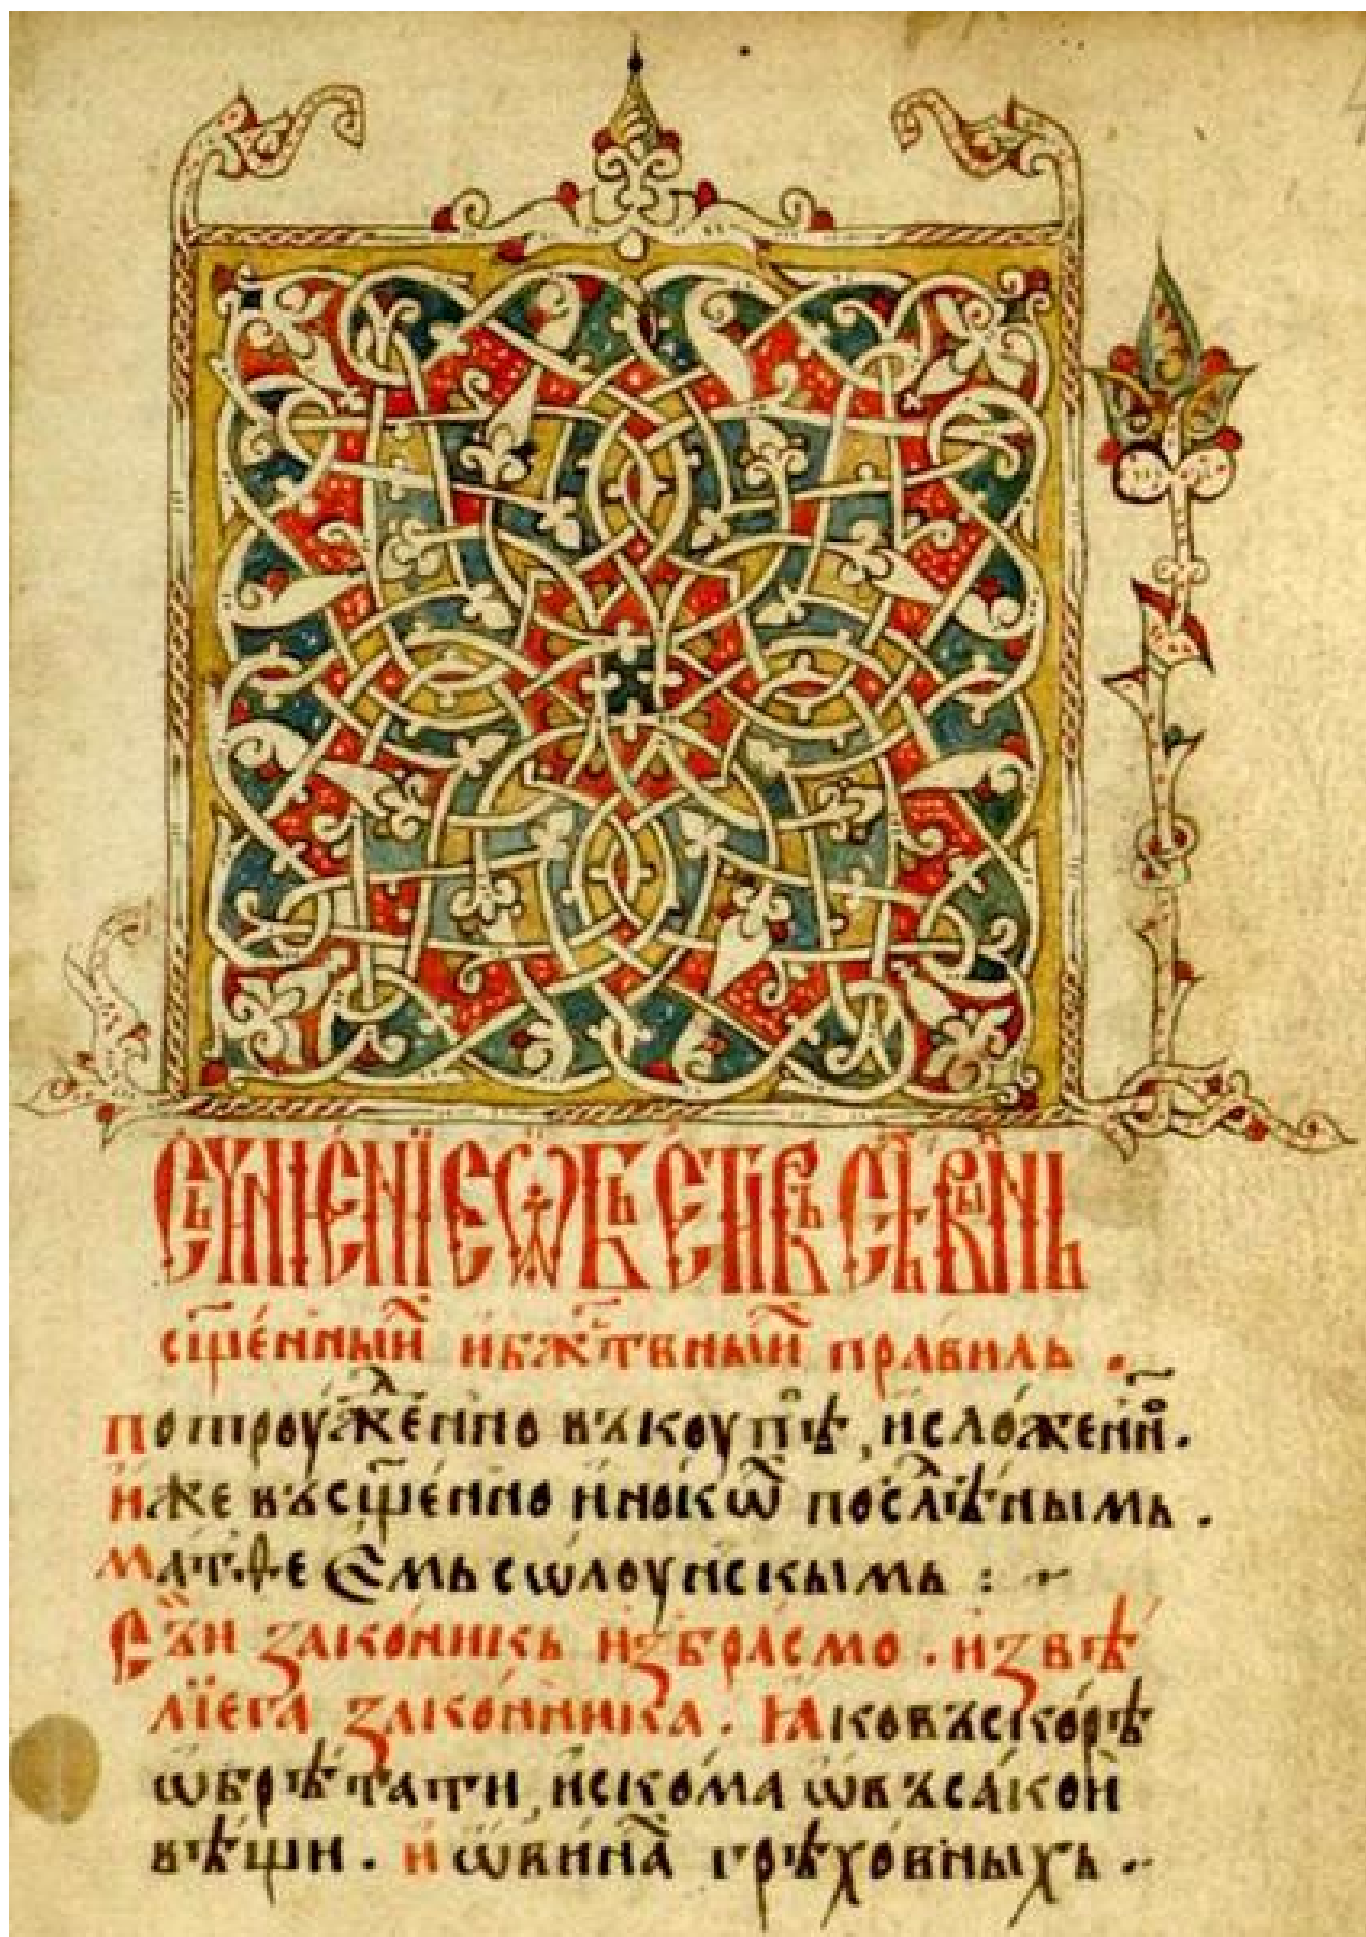 Съчиненїе ѡ въсѣхъ сꙗ въинъ
сщ҃е́нныⷯ и҆ бж҃ⷭ҇твныⷯ пра́вилъ .
потроуже́нно въкоупѣ , и҆ сло́женноⷨ .
И҆же въ сщ҃е́нно и҆нокѡⷯ послѣⷣнымъ .
Матѳеѥмь сѡлоу́нскымъ : ~
Съи зако́никь и҆збра́смо . и҆з вѣ
лїега зако́нника . Ꙗко въскорѣ
ѡ҆брѣтати , и҆скома ѡ҆ въса́кои
вѣщи . И҆ ѡ҆ вина́ⷯ грѣхо́вныхъ .